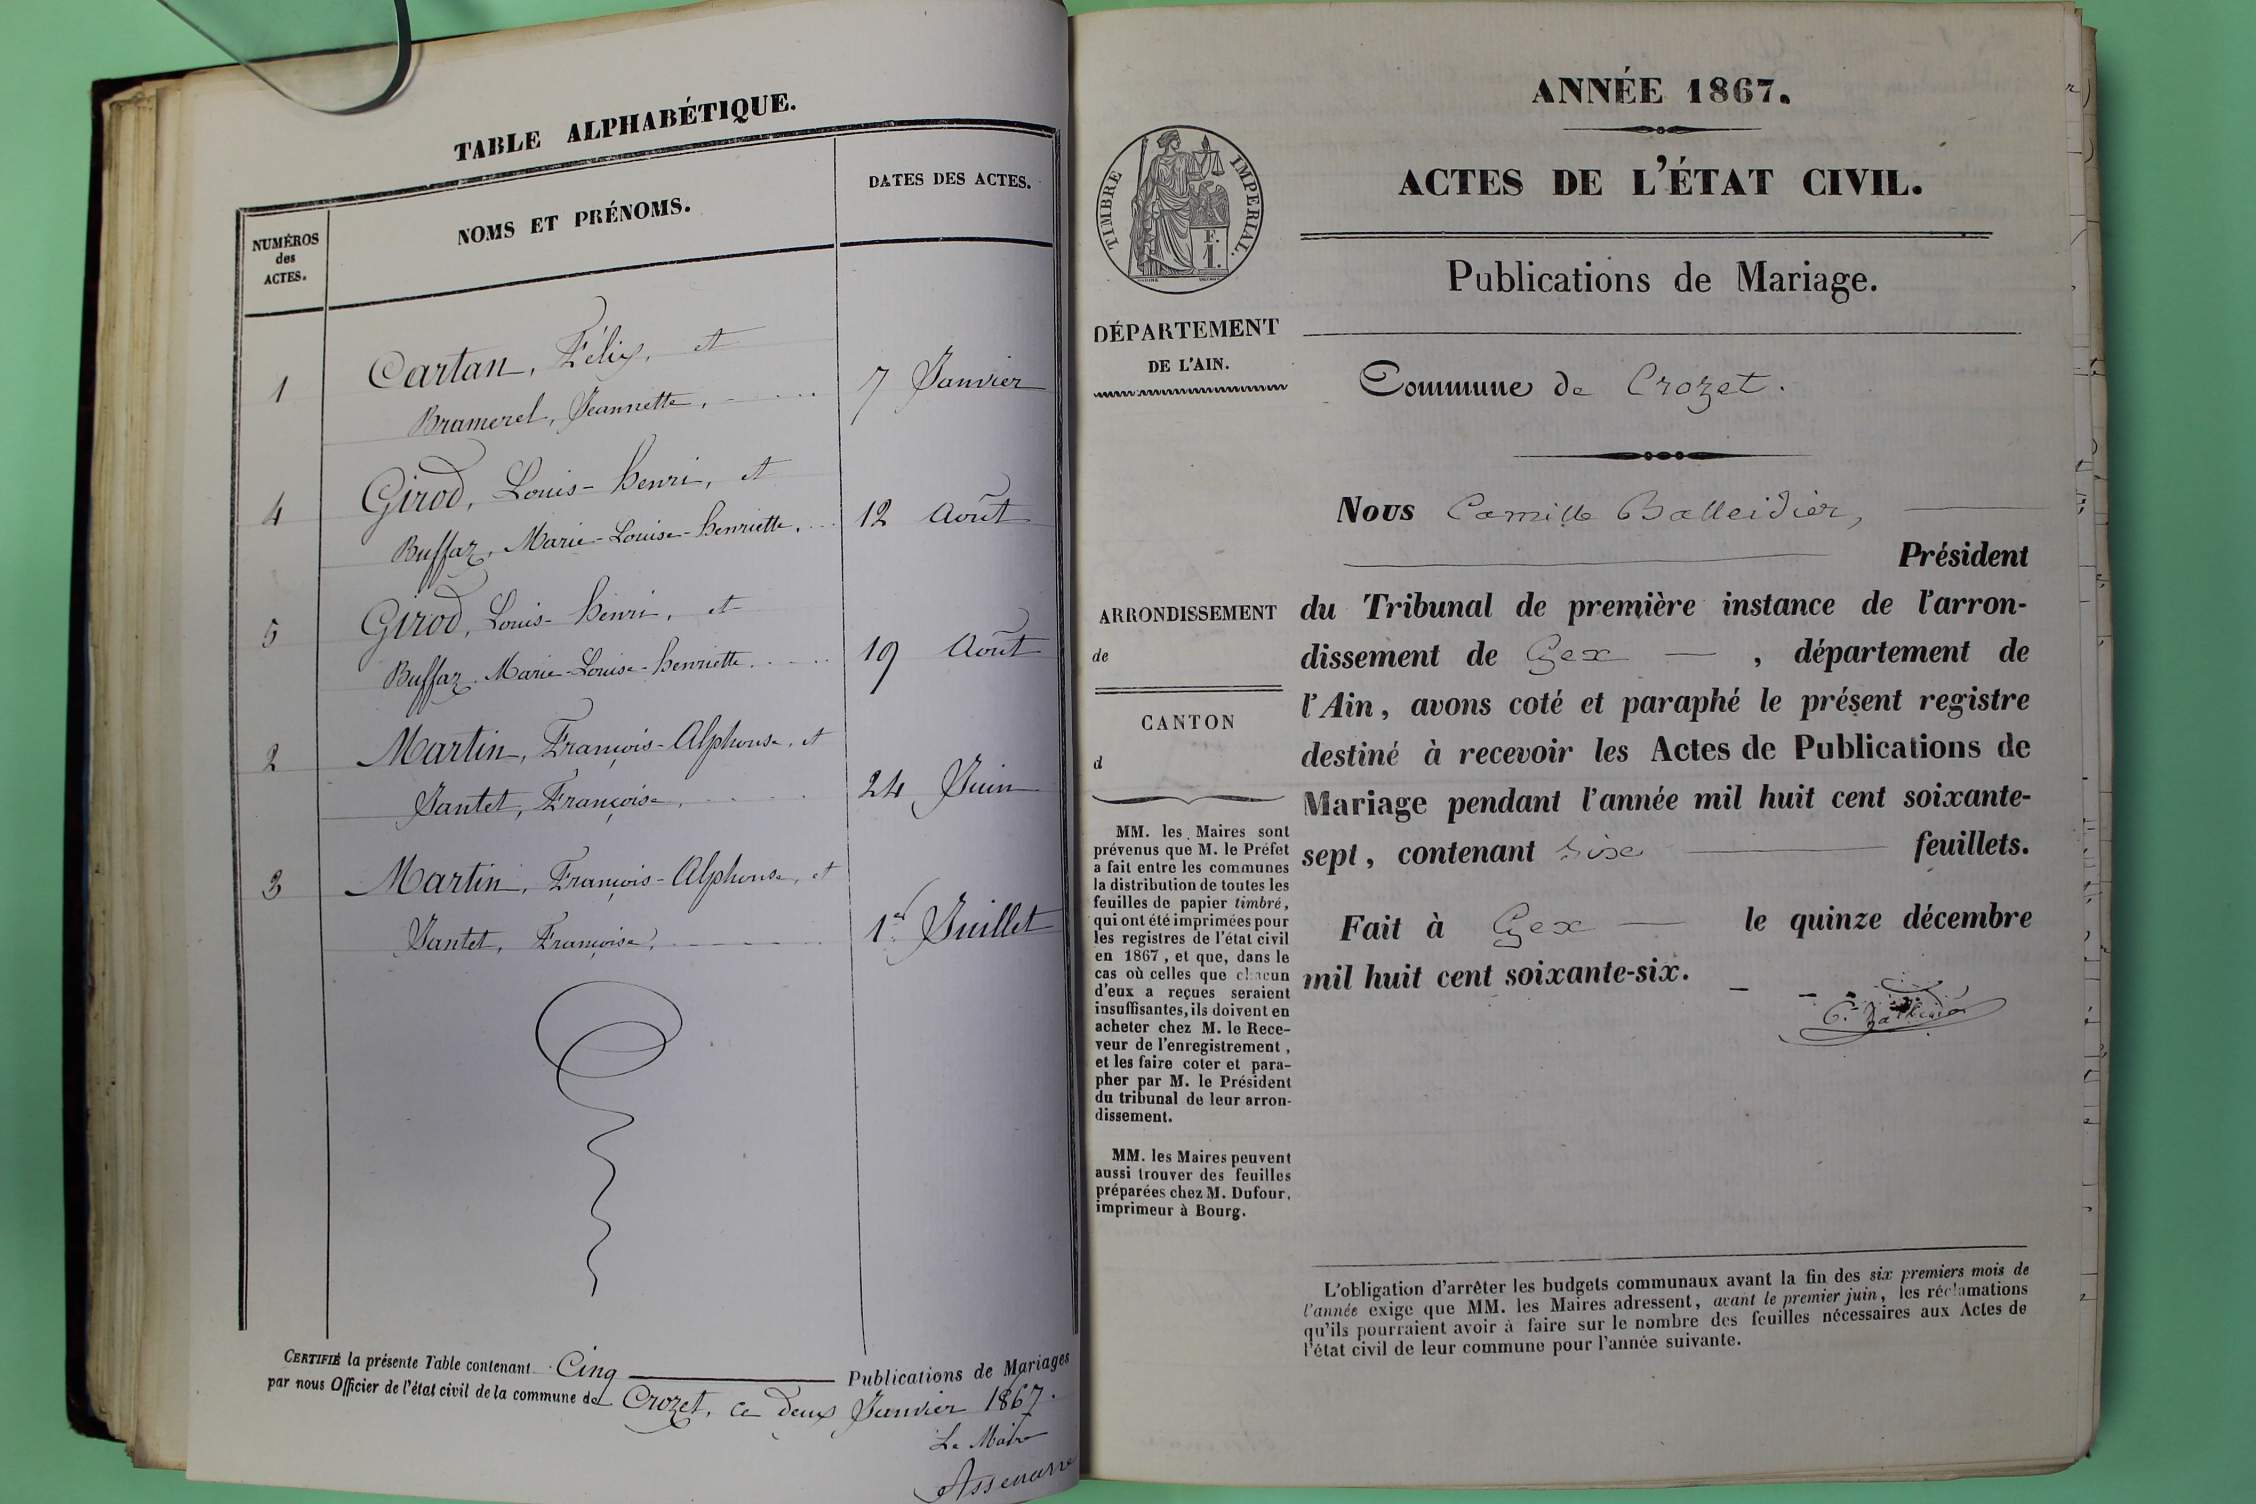 TABLE ALPHABÉTIQUE.
NUMÉROS
des
ACTES.
NOMS ET PRÉNOMS.
DATES DES ACTES.
1 Cartan, Félix, et
Bramerel, Jeannette, 7 Janvier
4 Girod, Louis-henri, et
Buffaz, Marie-Louise-henriette, 12 Août
5 Girod, Louis-henri, et
Buffaz, Marie-Louise-henriette 19 Août
2 Martin, François-Alphonse, et
Jantet, Françoise, 24 Juin
3 Martin, François-Alphonse, et
Jantet, Françoise, 1er Juillet
CERTIFIÉ la présente Table contenant Cinq Publications de Mariages
par nous Officier de l'état civil de la commune de Crozet, ce deux Janvier 1867.
Le Maire
ANNÉE 1867.
ACTES DE L'ÉTAT CIVIL.
Publications de Mariage.
TIMBRE IMPERIAL.
F.
1.
DÉPARTEMENT
DE L'AIN.
ARRONDISSEMENT
de
CANTON
d
MM. les Maires sont
prévenus que M. le Préfet
a fait entre les communes
la distribution de toutes les
feuilles de papier timbré,
qui ont été imprimées pour
les registres de l'état civil
en 1867, et que, dans le
cas où celles que chacun
d'eux a reçues seraient
insuffisantes, ils doivent en
acheter chez M. le Rece-
veur de l'enregistrement,
et les faire coter et para-
pher par M. le Président
du tribunal de leur arron-
dissement.
MM. les Maires peuvent
aussi trouver des feuilles
préparées chez M. Dufour,
imprimeur à Bourg.
Commune de Crozet.
Nous Camille Balleidier,
Président
du Tribunal de première instance de l'arron-
dissement de Gex, département de
l'Ain, avons coté et paraphé le présent registre
destiné à recevoir les Actes de Publications de
Mariage pendant l'année mil huit cent soixante-
sept, contenant six feuillets.
Fait à Gex le quinze décembre
mil huit cent soixante-six.
L'obligation d'arrêter les budgets communaux avant la fin des six premiers mois de
l'année exige que MM. les Maires adressent, avant le premier juin, les réclamations
qu'ils pourraient avoir à faire sur le nombre des feuilles nécessaires aux Actes de
l'état civil de leur commune pour l'année suivante.